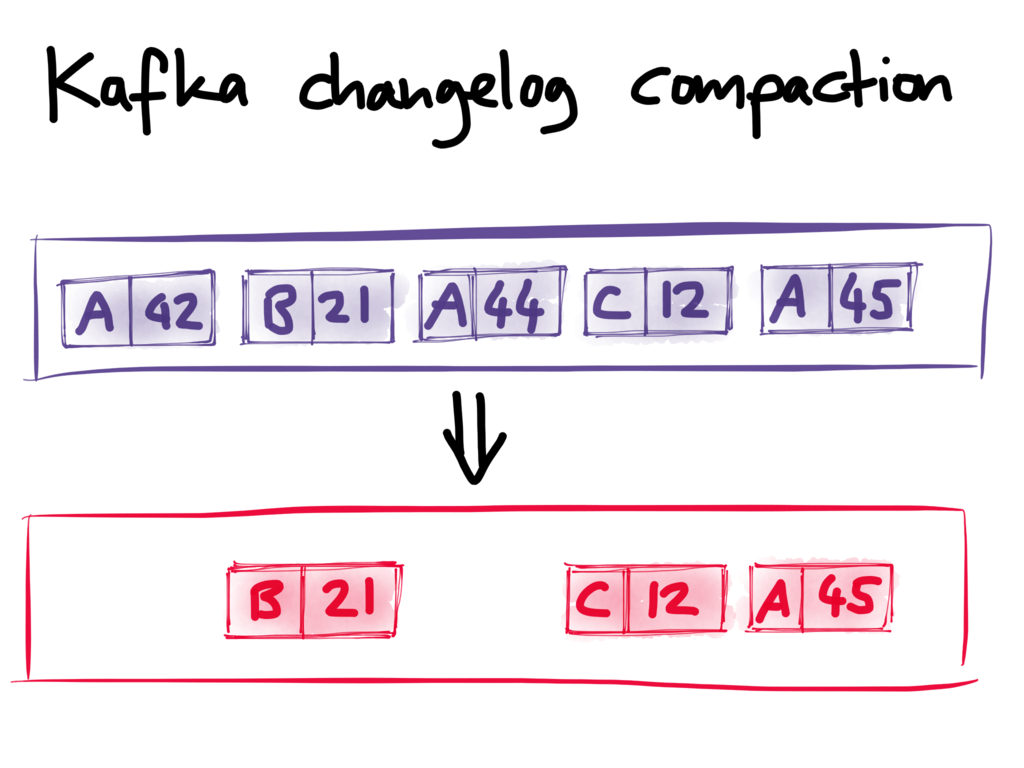 Kafka changelog compaction
A 42 B 21 A 44 C 12 A 45
B 21 C 12 A 45